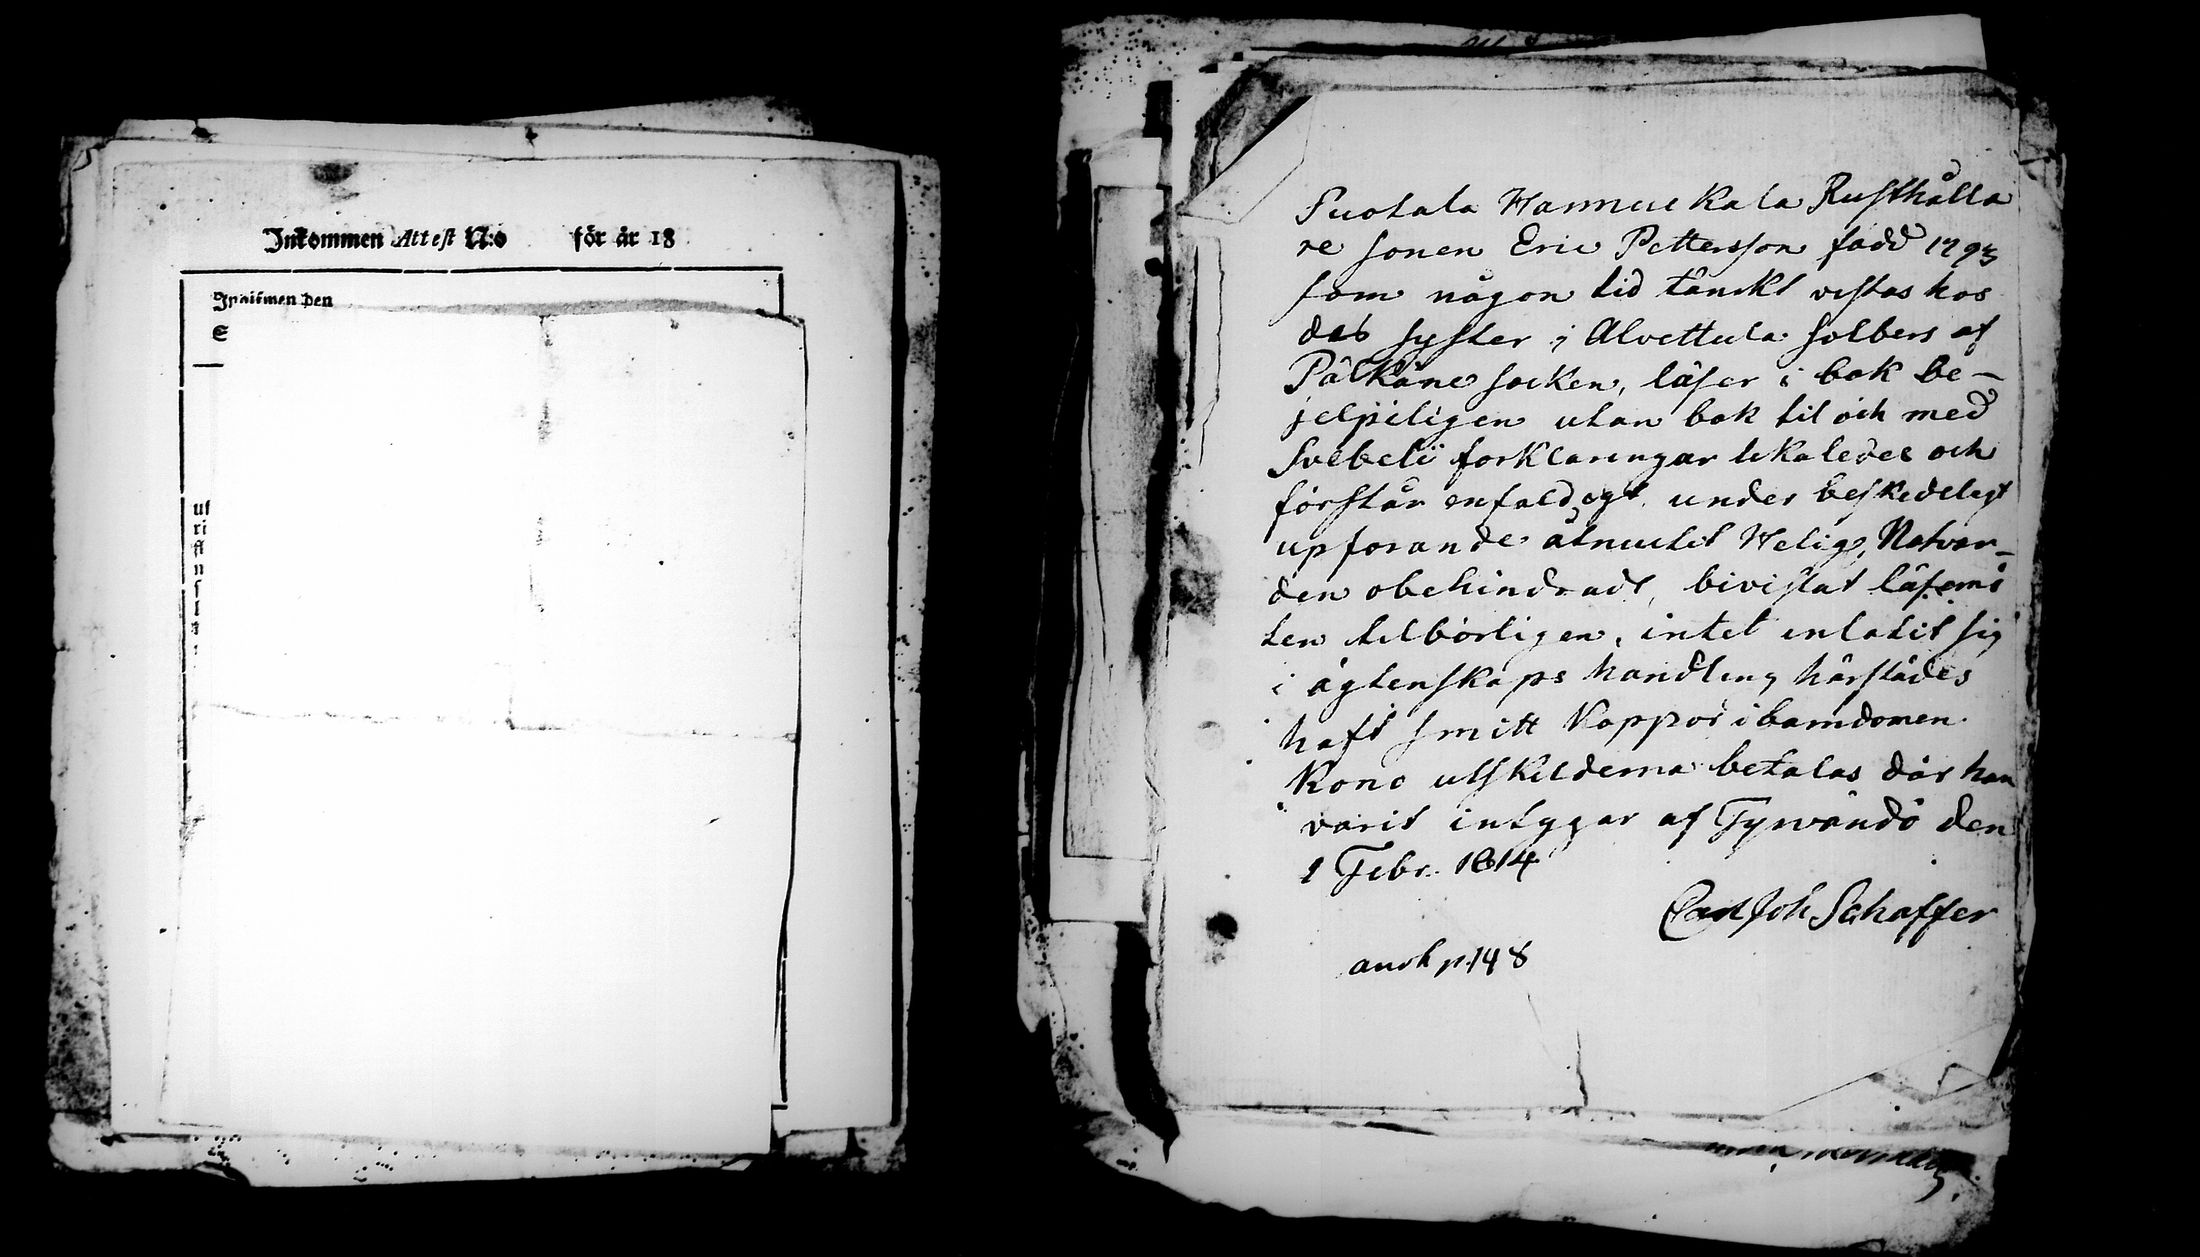 Inkommen Attest N:o för år 18
Inkommen den
E
ut
ri
st
n
s
Suotala Hannuu Kala Rusthålla
re sonen Eric Pettersson född 1793
som någon tid tänckt vistas hos
des syster i Alvettula Solbers af
Pälkäne socken, läser i bok be-
jelpiligen utan bok til och med
Svebelii forklaringar likaledes och
förstår enfaldigt, under beskedeligt
upforande åtnutit Helig, Natvar-
den obehindradt, bivistat läsemö
ten tilbörligen, intet inlatit sig
i ägtenskaps handling härstädes
haft smitt Koppor i barndomen.
Kono utskilderna betalas där han
varit intygar af Tyrvändö den
1 Febr. 1814
Carl Joh Schaffer
anoh p.148